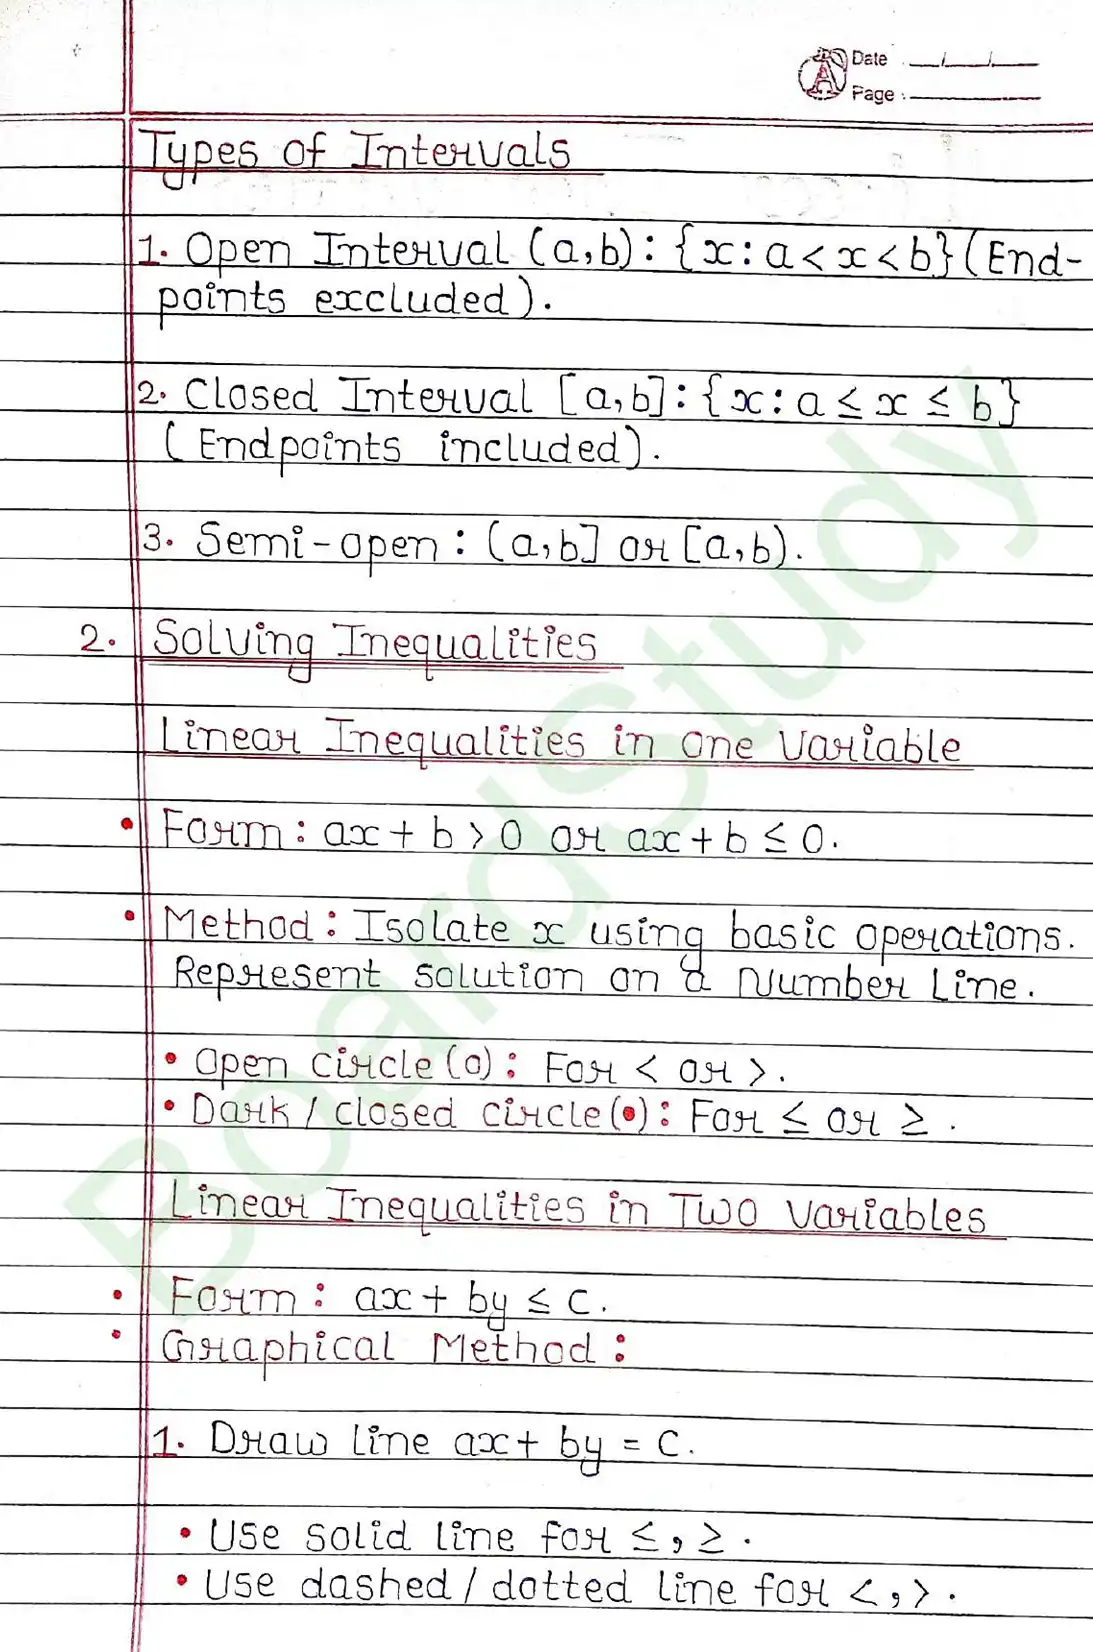 Date / /
Page :
Types of Intervals
1. Open Interval (a,b) : {x : a < x < b} (End-
points excluded).
2. Closed Interval [a,b] : {x : a ≤ x ≤ b}
(Endpoints included).
3. Semi-open : (a,b] or [a,b).
2. Solving Inequalities
Linear Inequalities in one Variable
• Form : ax + b > 0 or ax + b ≤ 0.
• Method : Isolate x using basic operations.
Represent solution on a Number Line.
• Open circle (o) : For < or >.
• Dark / closed circle (•) : For ≤ or ≥ .
Linear Inequalities in Two Variables
• Form : ax + by ≤ c.
• Graphical Method :
1. Draw line ax + by = c.
• Use solid line for ≤ , ≥ .
• Use dashed / dotted line for < , > .
BoardStudy